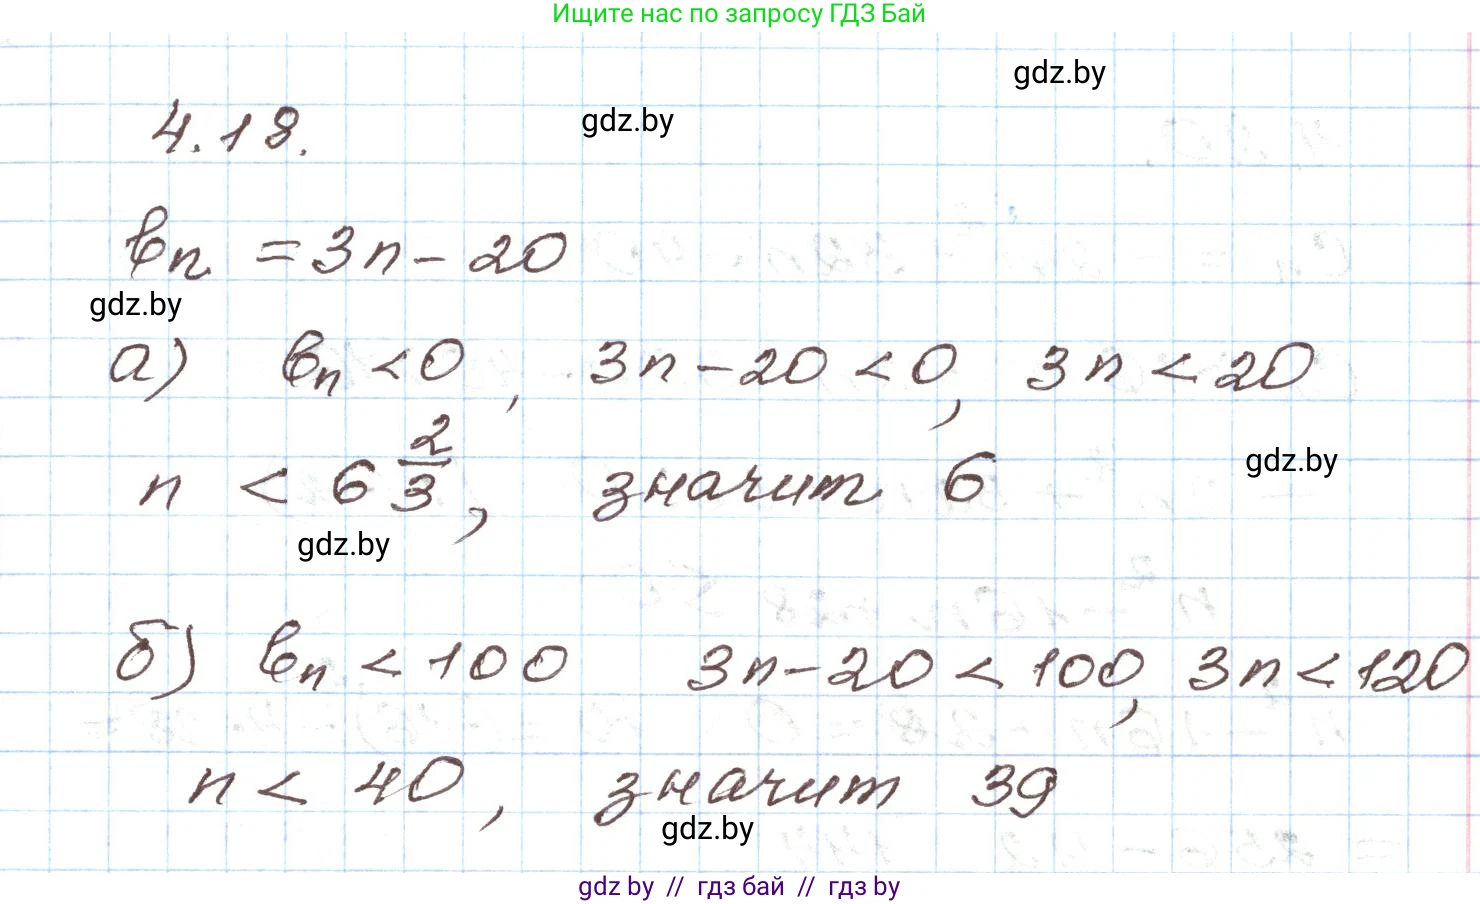 Ищите нас по запросу ГДЗ Бай
gdz.by
gdz.by
4.18.
bn = 3n - 20
gdz.by
а) bn < 0, 3n - 20 < 0, 3n < 20
n < 6 2/3, значит 6
gdz.by
gdz.by
б) bn < 100 3n - 20 < 100, 3n < 120
n < 40, значит 39
gdz.by
gdz by // гдз бай // гдз by